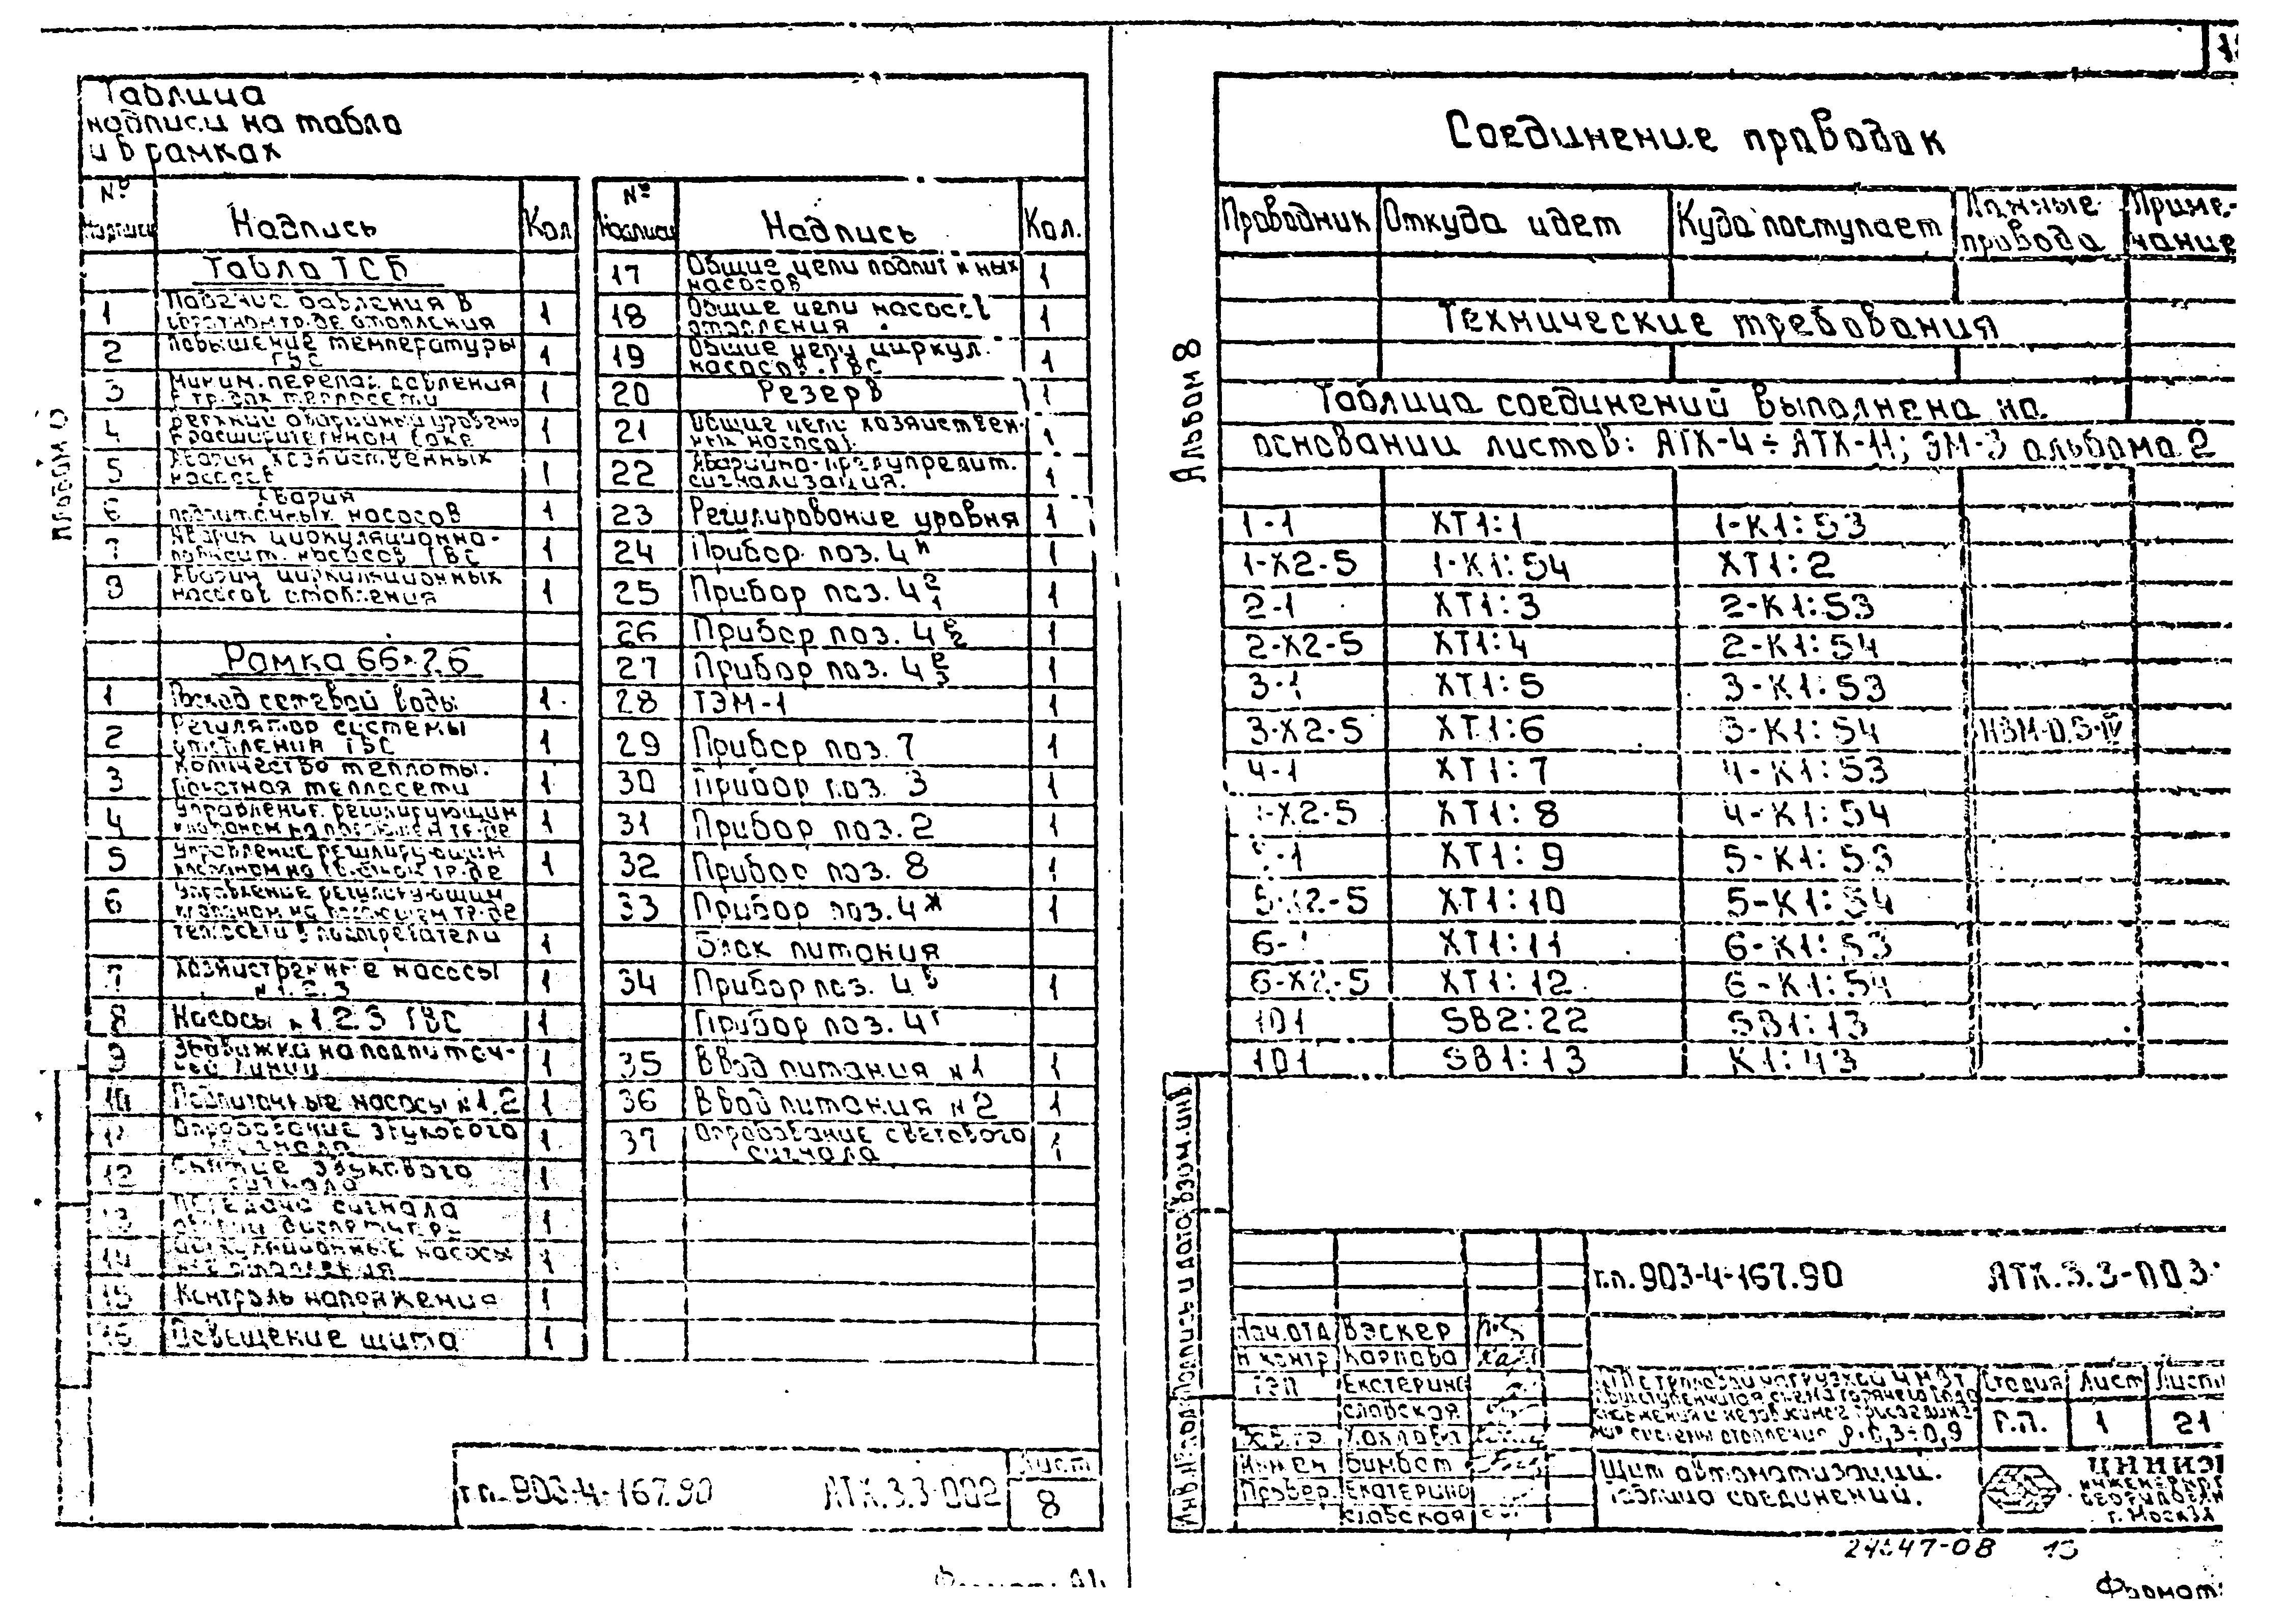 Таблица
надписи на табло
и в рамках
№ надписи Надпись Кол
Табло ТСБ
1 Падение давления в 1
обратном тр-де отопления
2 Повышение температуры 1
ГВС
3 Миним. перепад давления 1
в тр-дах теплосети
4 Верхний аварийный уровень 1
в расширительном баке
5 Авария хозяйственных 1
насосов
6 Авария 1
подпиточных насосов
Авария циркуляционно- 1
повысит. насосов ГВС
8 Авария циркуляционных 1
насосов отопления
Рамка 66×26
1 Расход сетевой воды 1
2 Регулятор системы 1
отопления ГВС
3 Количество теплоты. 1
Обратная теплосети
4 Управление регулирующим 1
клапаном на тр-де
5 Управление регулирующим 1
клапаном на тр-де
6 Управление регулирующим
клапаном на тр-де
теплосети 1
7 Хозяйственные насосы 1
№ 1.2.3
8 Насосы № 1 2 3 ГВС 1
9 Задвижка на подпиточ- 1
ной линии
10 Подпиточные насосы № 1.2 1
11 Опробование звукового 1
сигнала
12 Снятие звукового 1
сигнала
13 Передача сигнала 1
аварии диспетчеру
14 Циркуляционные насосы 1
отопления
15 Контроль напряжения 1
16 Освещение щита 1
№ надписи Надпись Кол.
17 Общие цепи подпиточных 1
насосов
18 Общие цепи насосов 1
отопления
19 Общие цепи циркул. 1
насосов. ГВС
20 Резерв 1
21 Общие цепи хозяйствен- 1
ных насосов.
22 Аварийно-предупредит. 1
сигнализация.
23 Регулирование уровня 1
24 Прибор поз. 4и 1
25 Прибор поз. 4е1 1
26 Прибор поз. 4е2 1
27 Прибор поз. 4е3 1
28 ТЭМ-1 1
29 Прибор поз. 7 1
30 Прибор поз. 3 1
31 Прибор поз. 2 1
32 Прибор поз. 8 1
33 Прибор поз. 4ж 1
Блок питания
34 Прибор поз. 4в 1
Прибор поз. 4г
35 Ввод питания № 1 1
36 Ввод питания № 2 1
37 Опробование светового 1
сигнала
т.п. 903-4-167.90 АТХ.3.3-002 Лист
8
Альбом 8
Соединение проводок
Проводник Откуда идет Куда поступает Данные провода Приме-чание
Технические требования
Таблица соединений выполнена на
основании листов: АТХ-4÷АТХ-11; ЭМ-3 альбома 2
1-1 ХТ1:1 1-К1:53
1-Х2-5 1-К1:54 ХТ1:2
2-1 ХТ1:3 2-К1:53
2-Х2-5 ХТ1:4 2-К1:54
3-1 ХТ1:5 3-К1:53
3-Х2-5 ХТ1:6 3-К1:54
4-1 ХТ1:7 4-К1:53
-Х2-5 ХТ1:8 4-К1:54
-1 ХТ1:9 5-К1:53
5-Х2-5 ХТ1:10 5-К1:54
6-1 ХТ1:11 6-К1:53
6-Х2-5 ХТ1:12 6-К1:54
101 SB2:22 SB1:13
101 SB1:13 К1:43
Инв.№подл Подпись и дата Взам.инв.
т.п. 903-4-167.90 АТХ.3.3-003
Нач.отд Вэскер
Н контр Карпова
ГИП Екатерино
славская
Инжен Бимбат
Провер. Екатерино
славская
Стадия Лист
Р.П. 1 21
Щит автоматизации.
Таблица соединений.
г. Москва
13
Формат